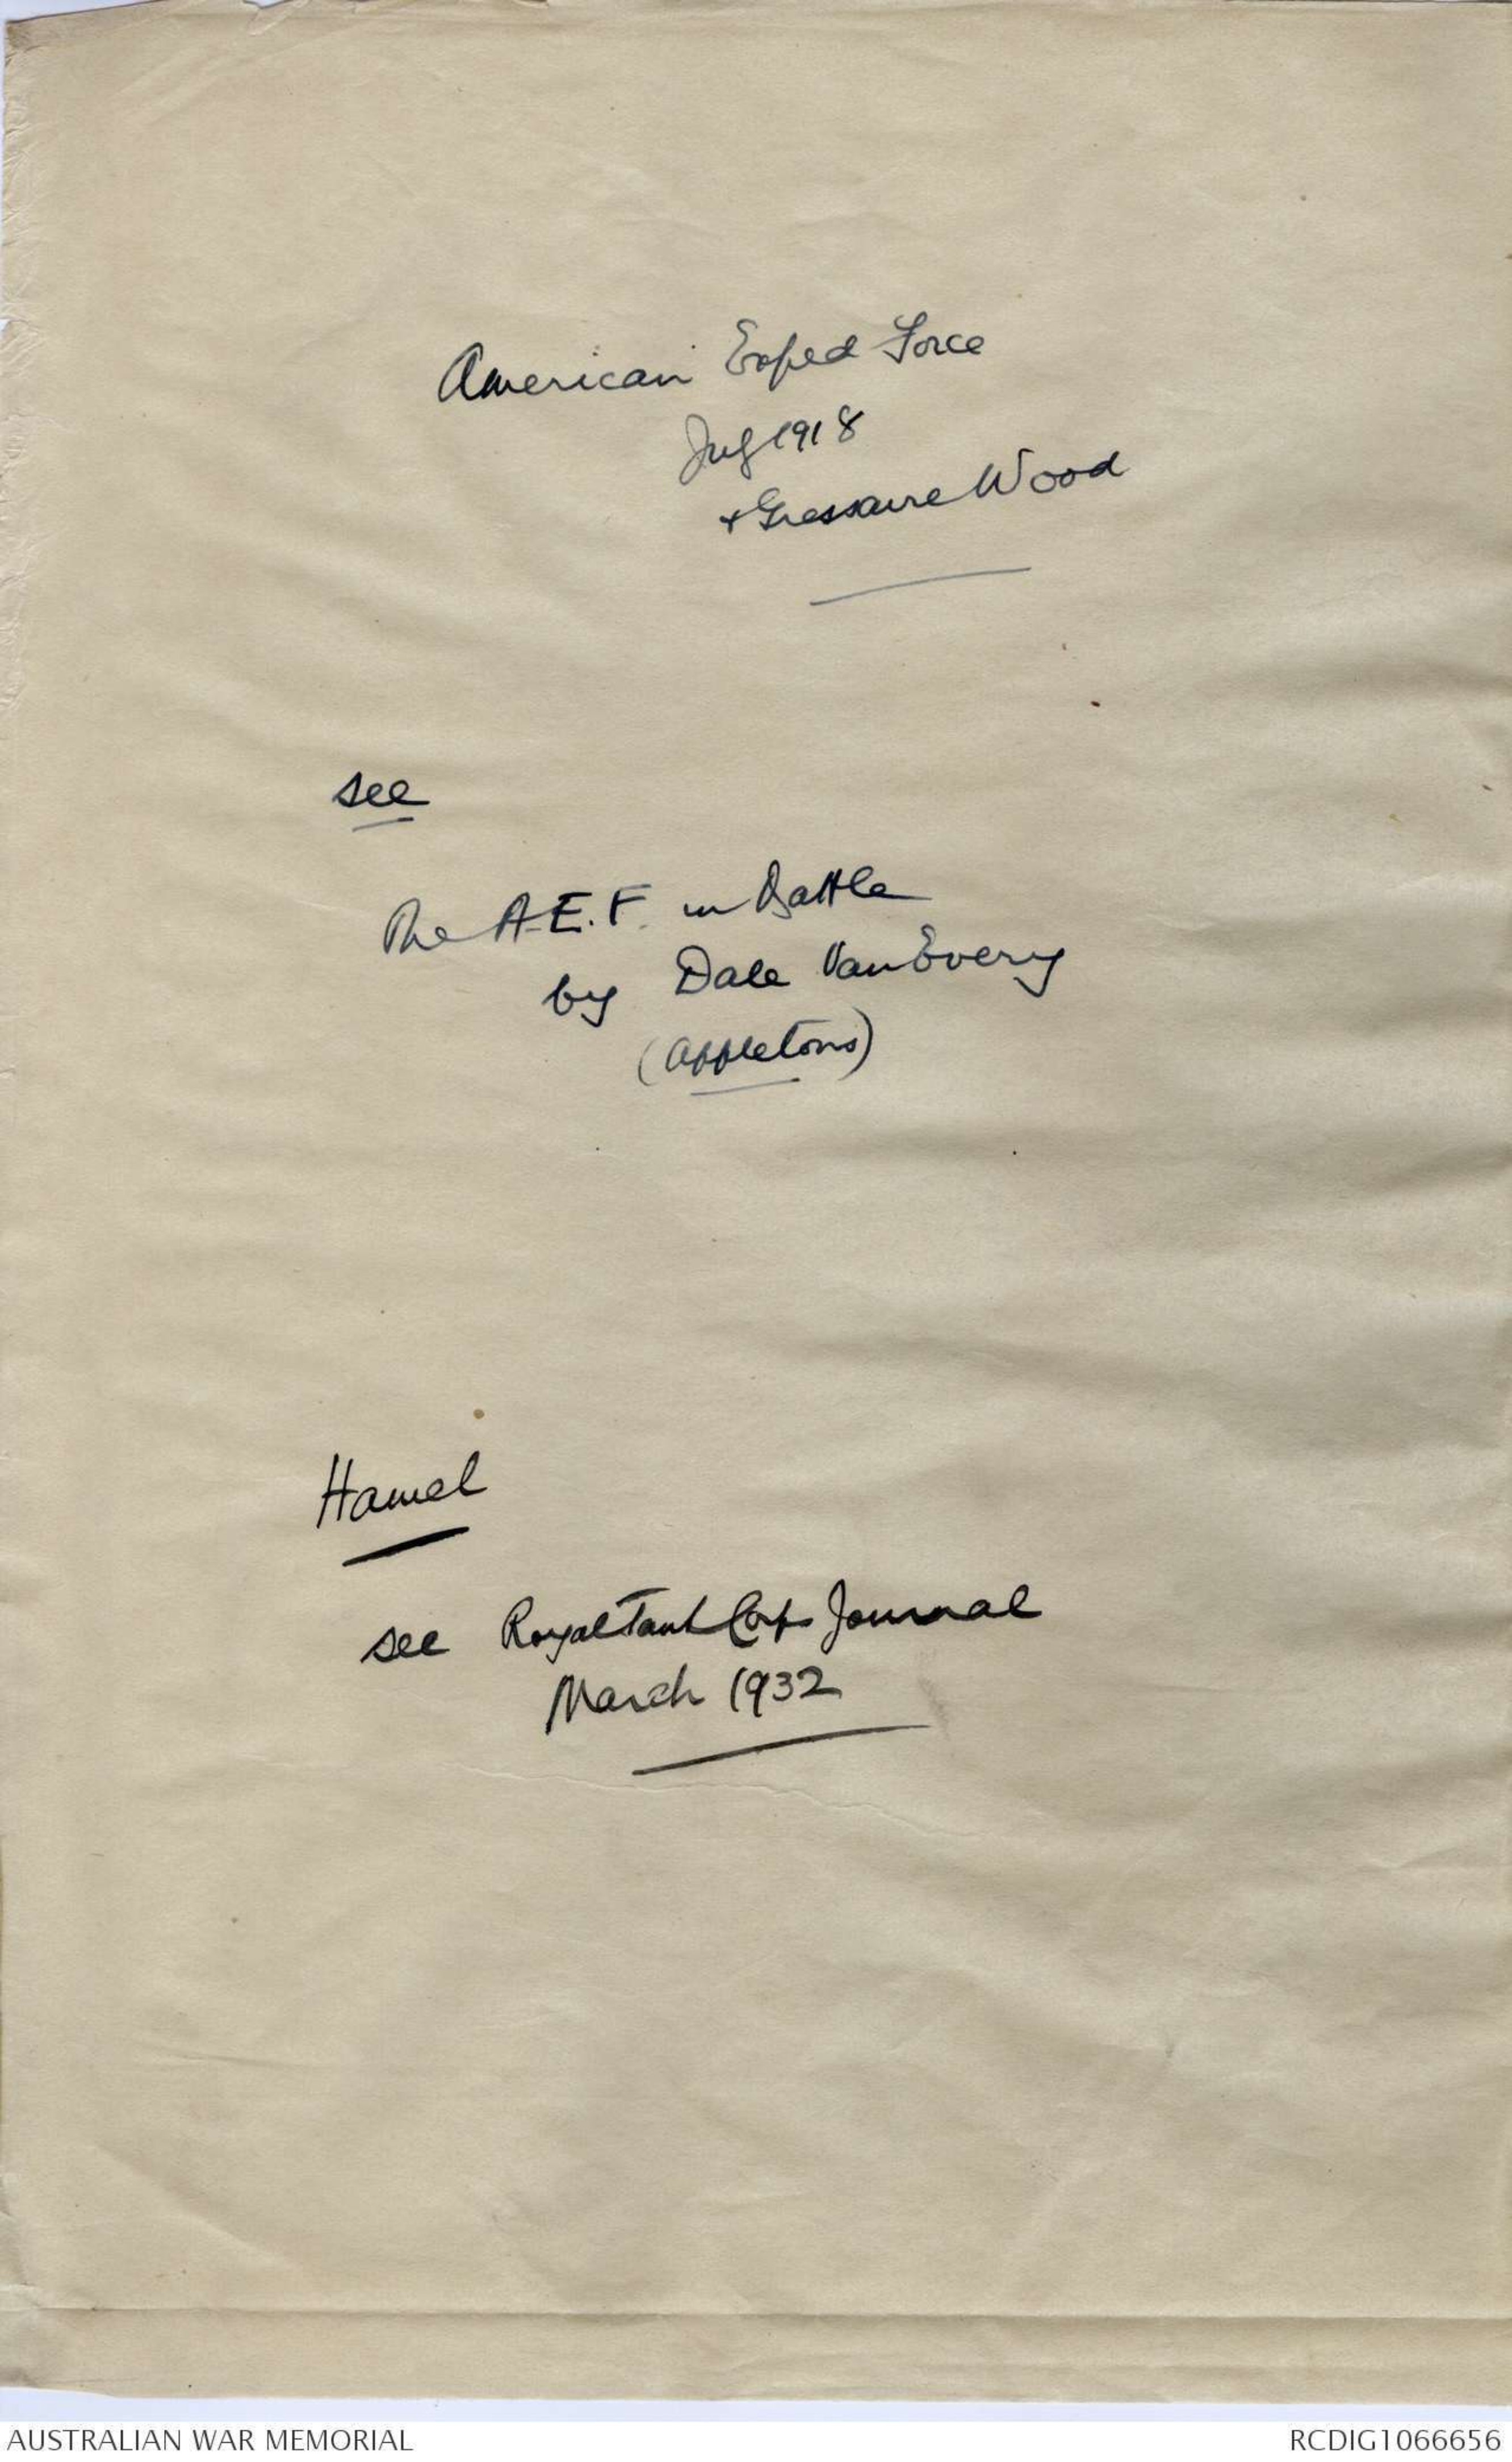 American Exped Force
July 1918
+ Gressaire Wood
see
The A.E.F. in Battle
by Dale Van Every
(Appletons)
Hamel
see Royal Tank Corps Journal
March 1932
AUSTRALIAN WAR MEMORIAL
RCDIG1066656